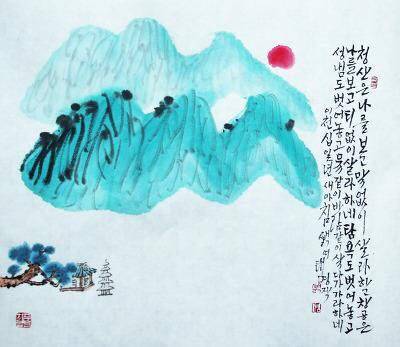 청산은 나를 보고 말없이 살라하고 창공은
나를 보고 티없이 살라하네 탐욕도 벗어놓고
성냄도 벗어놓고 물같이 바람같이 살다가 가라하네
이천십일년 새아침에